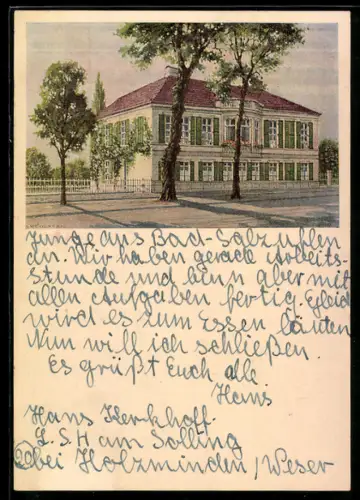 Junge aus Bad-Salzuflen
an. Wir haben gerade Arbeits-
stunde und binn aber mit
allen Aufgaben fertig. Gleich
wird es zum Essen läuten
Nun will ich schließen.
Es grüßt Euch alle
Hans
Hans Kerkhoff.
L. S. H am Solling
20 bei Holzminden / Weser